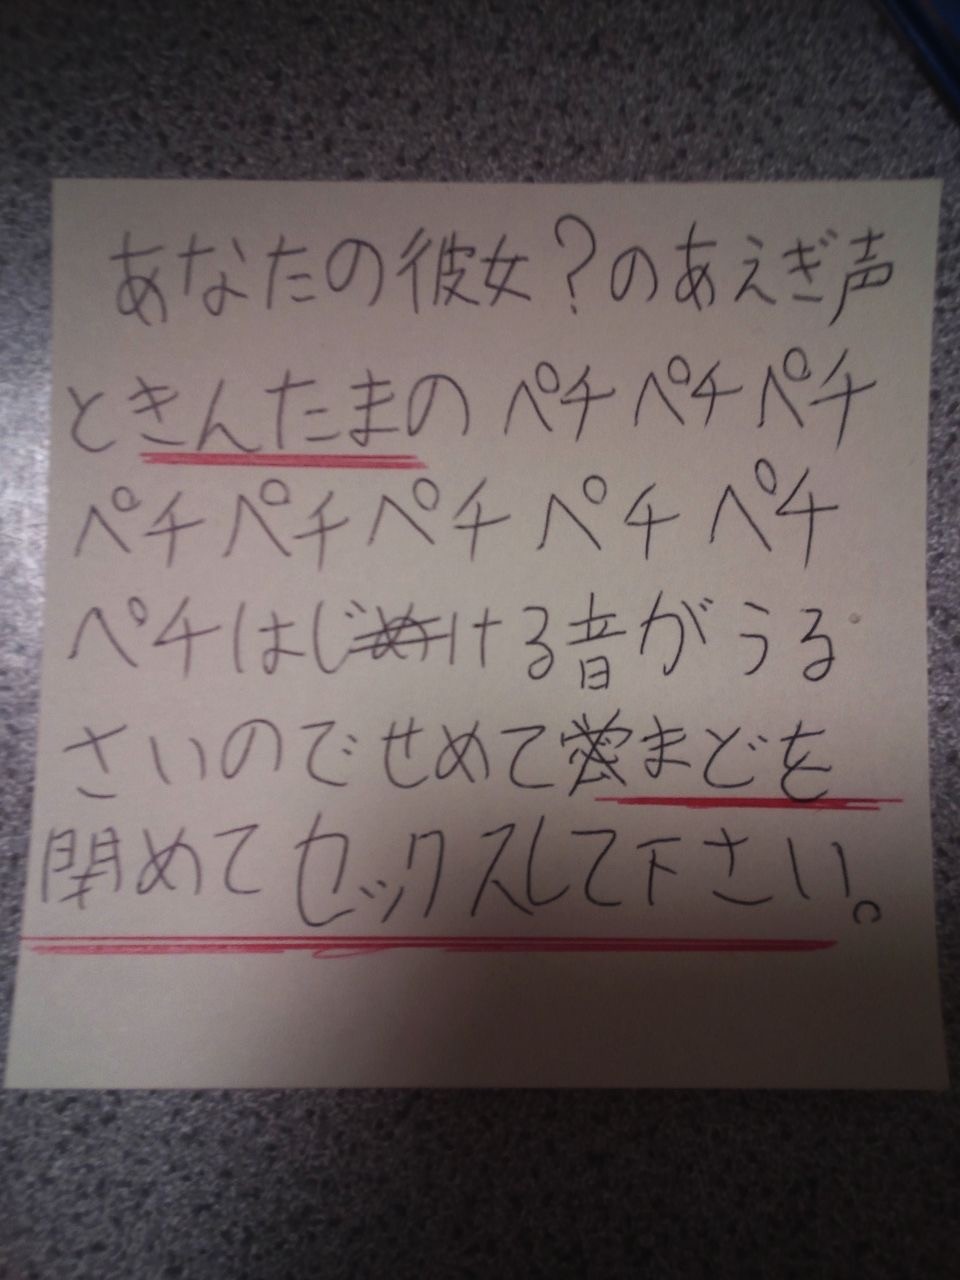 あなたの彼女？のあえぎ声
ときんたまの ペチペチペチ
ペチペチペチペチペチ
ペチはじける音がうる
さいのでせめてまどを
閉めてセックスして下さい。